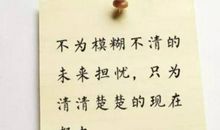 不为模糊不清的
未来担忧，只为
清清楚楚的现在